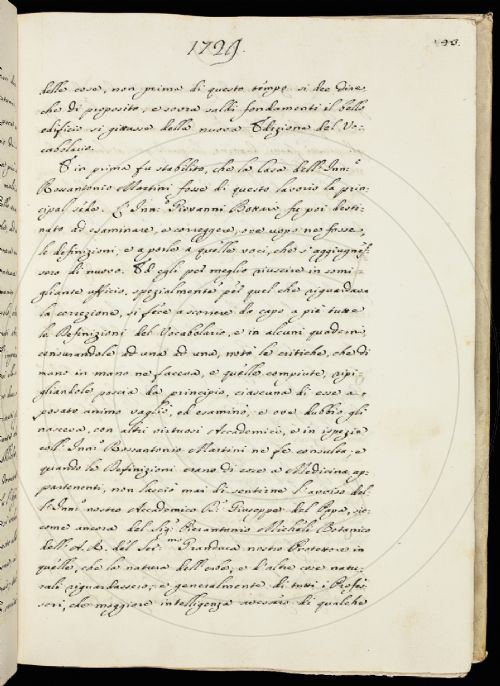 1729.
93.
delle cose, non prima di questo tempo si dee dire,
che di proposito, e sovra saldi fondamenti il bello
edificio si gittasse della nuova Edizione del Vo-
cabolario.
E in prima fu stabilito, che la Casa dell' Inn.º
Rossantonio Martini fosse di questo lavorio la prin-
cipal sede. L' Inn.º Giovanni Bottari fu poi desti-
nato ad esaminare, e correggere, ove uopo ne fosse,
le definizioni, e a porle a quelle voci, che s' aggiugnes-
sero di nuovo. Ed egli per meglio riuscire in somi-
gliante ufficio, spezialmente per quel che riguardava
la correzione, si fece a scorrere da capo a piè tutte
le Definizioni del Vocabolario, e in alcuni quaderni
censurandole ad una ad una, notò le critiche, che di
mano in mano ne faceva, e quelle compiute, ripi-
gliandole poscia da principio, ciascuna di esse a
posato animo vagliò, ed esaminò, e ove dubbio gli
nasceva, con altri virtuosi Accademici, e in ispezie
coll' Inn.º Rossantonio Martini ne fe consulta, e
quando le Definizioni erano di cose a Medicina ap-
partenenti, non lasciò mai di sentirne l' avviso del-
l' Inn. nostro Accademico Giuseppe del Papa, sic-
come ancora del Sig.r Pierantonio Micheli Botanico
dell' A. R. del Ser.mo Granduca nostro Protettore in
quelle, che la natura dell' erbe, e d' altre cose natu-
rali riguardassero, e generalmente di tutti i Profes-
sori, che maggiore intelligenza avessero di qualche